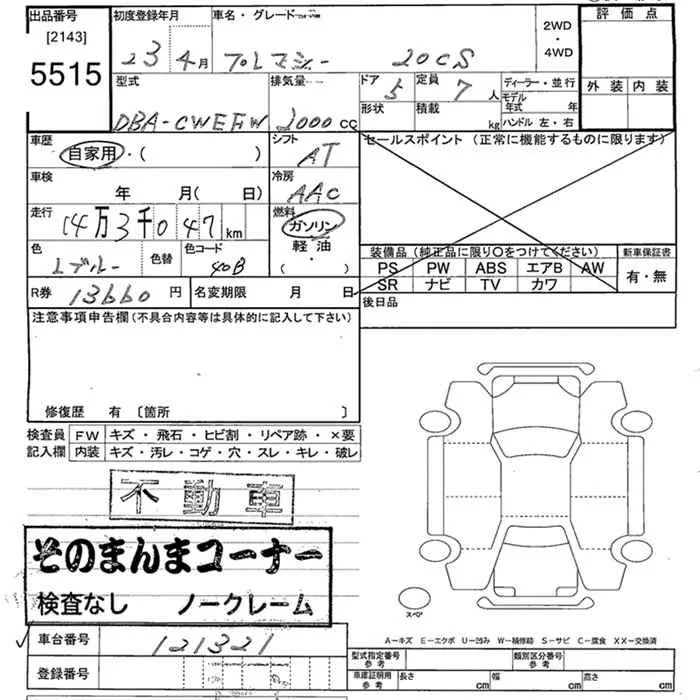 出品番号
[2143]
5515
初度登録年月
23 4月
車名・グレード
プレマシー 20CS
2WD
・
4WD
評価点
外装 内装
型式
DBA-CWEFW
排気量
2000 CC
ドア 5
形状
定員 7 人
積載 kg
ディーラー・並行
モデル年式 年
ハンドル 左・右
車歴
自家用・( )
シフト
AT
セールスポイント (正常に機能するものに限ります)
車検
年 月( 日)
冷房
AAC
走行
14万3千047km
燃料
ガソリン
軽油
( ・ )
色
Lブルー
色替
色コード
40B
装備品 (純正品に限り〇をつけてください)
PS PW ABS エアB AW
SR ナビ TV カワ
新車保証書
有・無
R券 13660 円
名変期限 月 日
後日品
注意事項申告欄 (不具合内容等は具体的に記入して下さい)
修復歴 有 〔箇所 〕
検査員 FW キズ・飛石・ヒビ割・リペア跡・×要
記入欄 内装 キズ・汚レ・コゲ・穴・スレ・キレ・破レ
不動車
そのまんまコーナー
検査なし ノークレーム
スペア
車台番号 121321
登録番号
A－キズ E－エクボ U－凹み W－補修跡 S－サビ C－腐食 XX－交換済
型式指定番号
参考
類別区分番号
参考
車庫証明用
参考
長さ cm 幅 cm 高さ cm